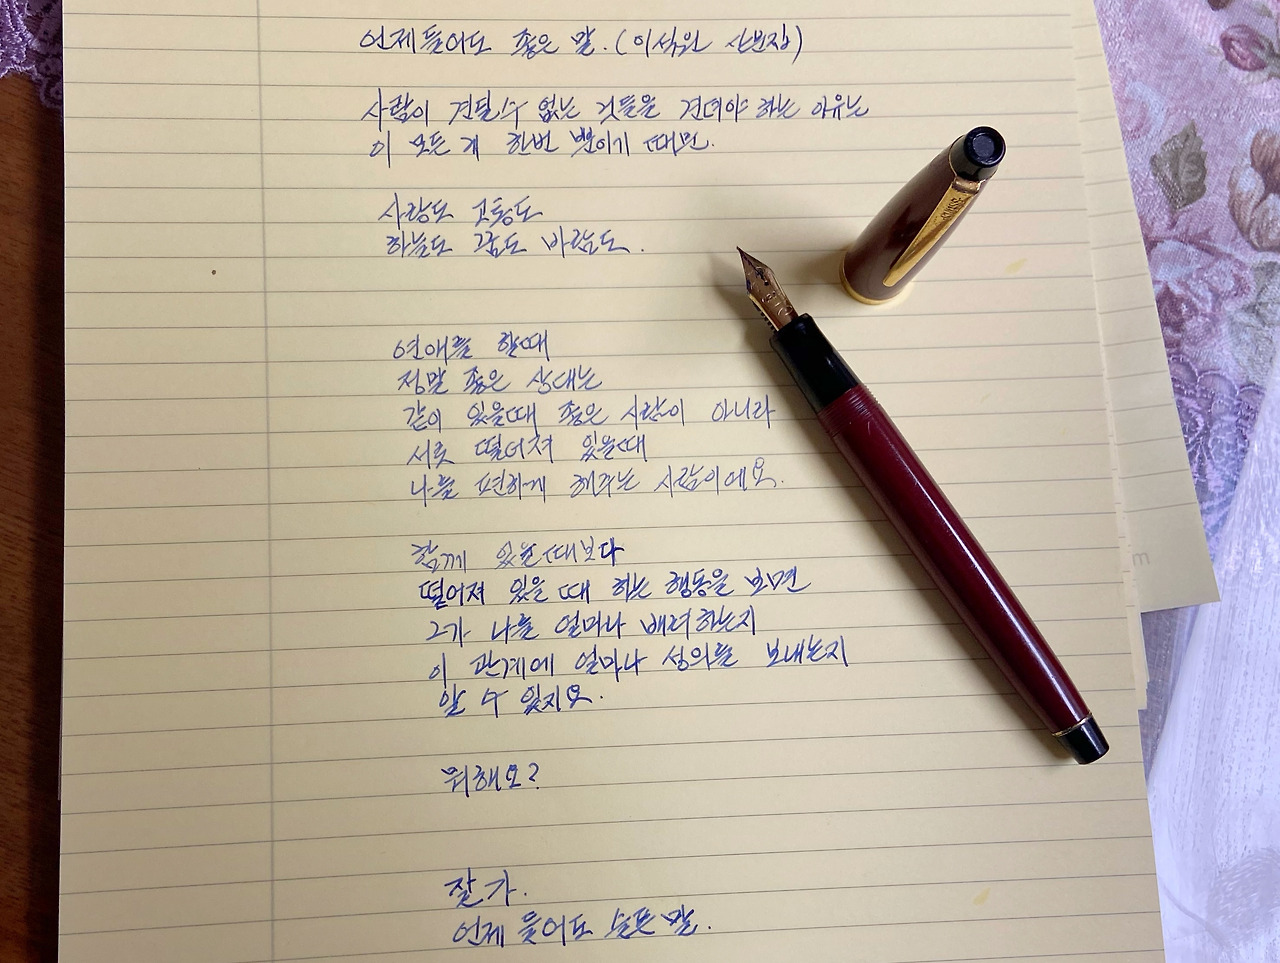 언제들어도 좋은 말. (이석원 산문집)
사람이 견딜수 없는 것들을 견뎌야 하는 이유는
이 모든 게 한번 뿐이기 때문.
사랑도 고통도
하늘도 꿈도 바람도.
연애를 할때
정말 좋은 상대는
같이 있을때 좋은 사람이 아니라
서로 떨어져 있을때
나를 편하게 해주는 사람이에요.
함께 있을때보다
떨어져 있을 때 하는 행동을 보면
그가 나를 얼마나 배려하는지
이 관계에 얼마나 성의를 보내는지
알 수 있지요.
뭐해요?
잘가.
언제 들어도 슬픈 말.